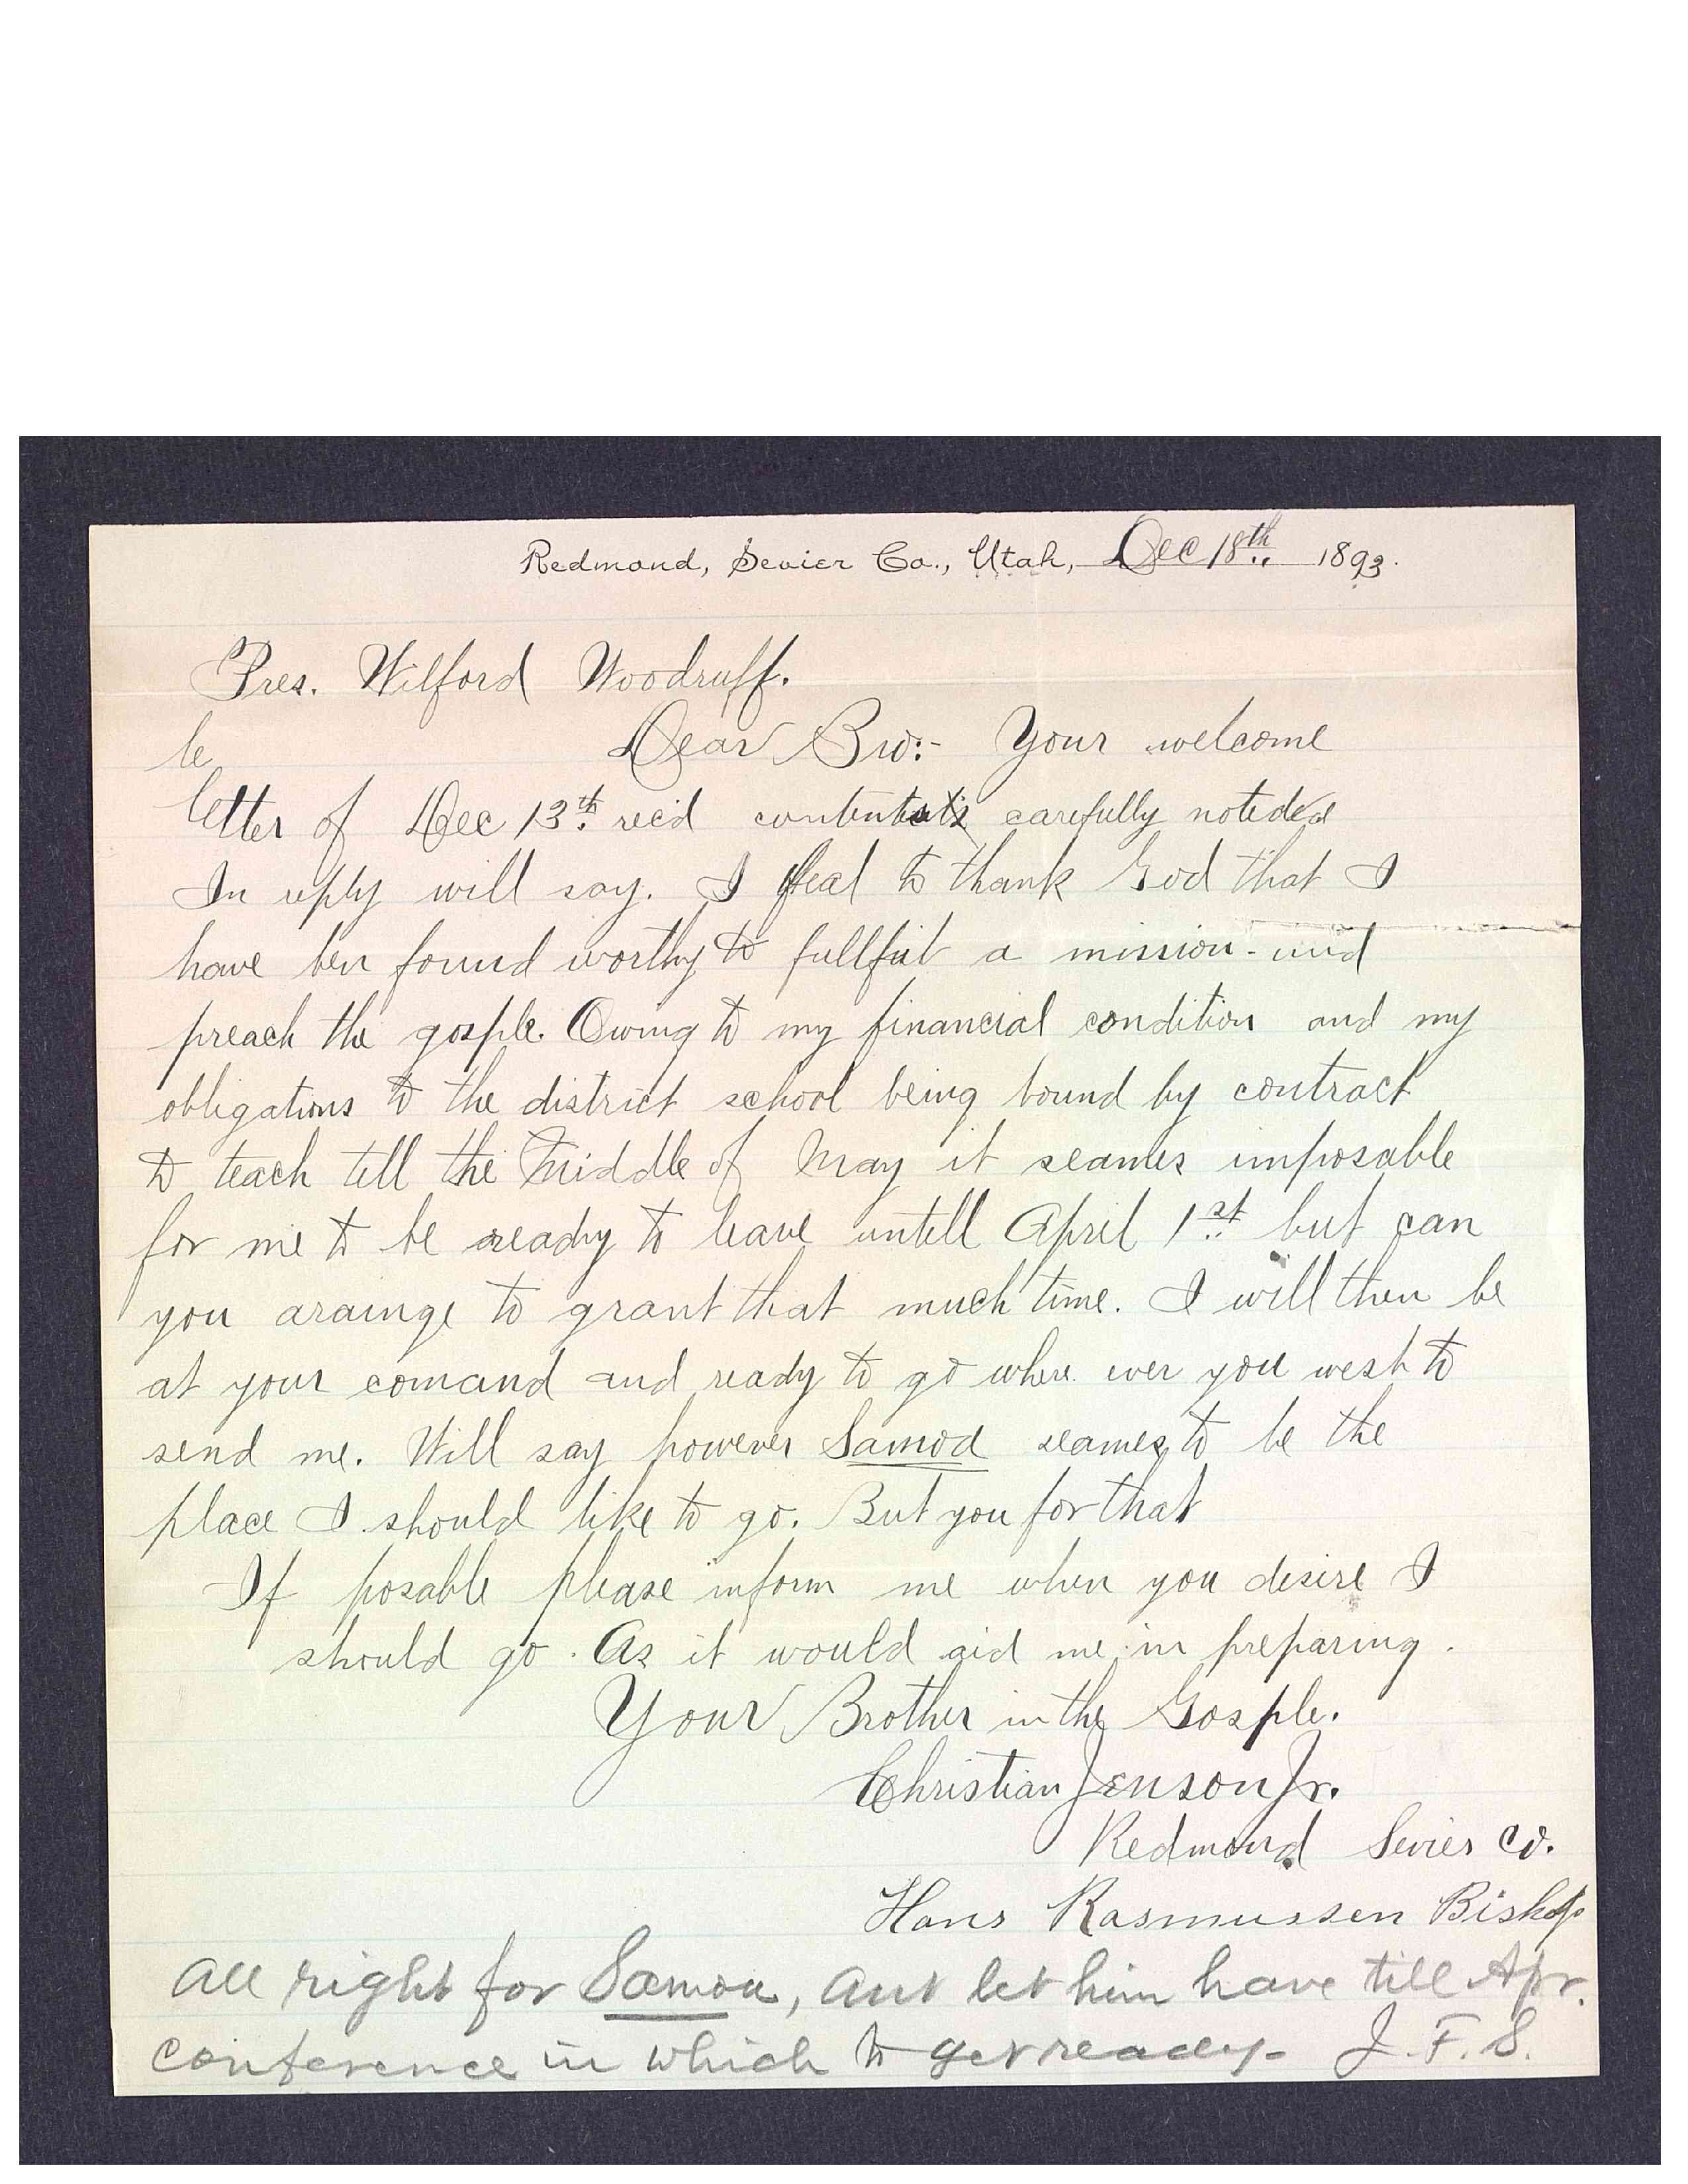 Redmond, Sevier Co., Utah, Dec 18th 1893.
Pres. Wilford Woodruff.
le Dear Bro:- Your welcome
letter of Dec 13th rec'd contents carefully noted
In reply will say. I feal to thank God that I
have ben found worthy to fullfil a mission - and
preach the gosple. Owing to my financial condition and my
obligations to the district school being bound by contract
to teach tell the Middle of May it seames imposable
for me to be ready to leave untell April 1st but can
you arainge to grant that much time. I will then be
at your comand and ready to go where ever you wesh to
send me. Will say however Samoa seames to be the
place I should like to go. But you for that
If posable please inform me when you desire I
should go. As it would aid me in preparing.
Your Brother in the Gosple.
Christian Jenson Jr.
Redmond Sevier Co.
Hans Rasmussen Bishop
All right for Samoa, and let him have till Apr.
conference in which to get ready- J. F. S.